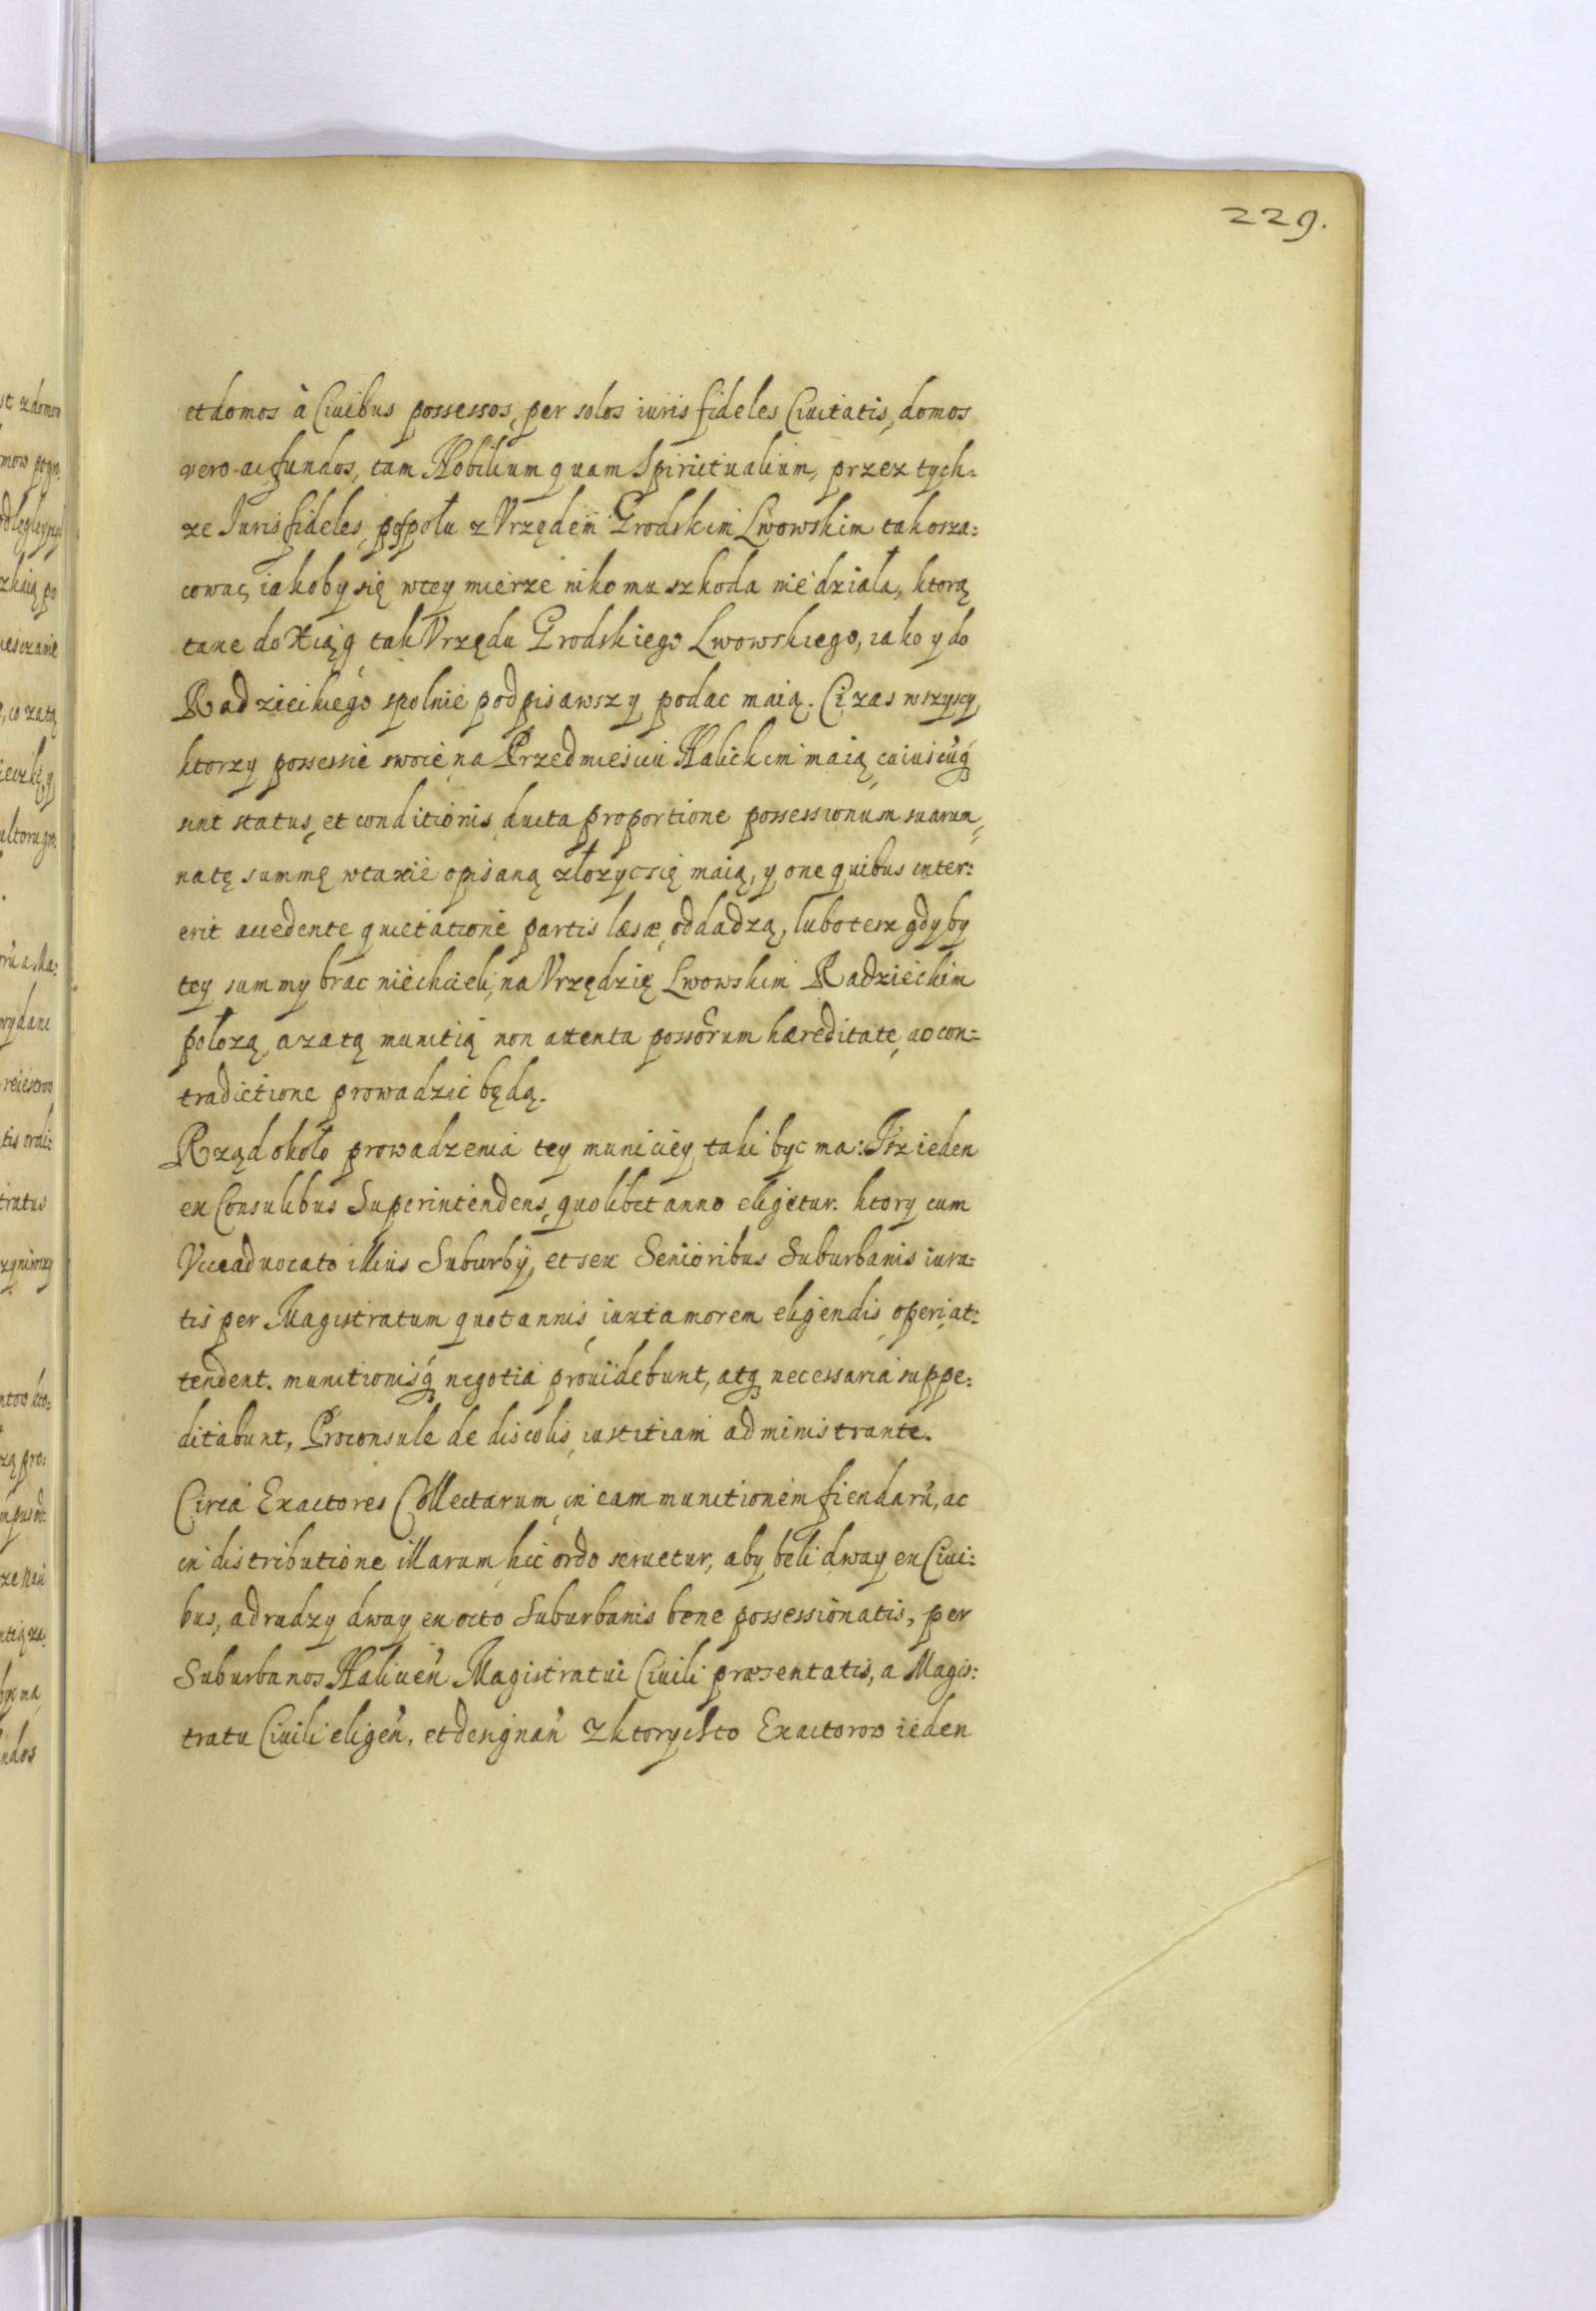 229.
et domos à Ciuibus possessos, per solos iuris fideles Ciuitatis, domos
vero ac fundos, tam Nobilium quam Spiritualium, przez tych:
ze Iuris fideles, pospołu z Vrzędem Grodskim Lwowskim tak osza:
cowac, iakoby się wtey mierze nikomu szkoda nie działa, ktorą
taxe do Xiąg tak Vrzędu Grodskiego Lwowskiego, iako y do
Radzieckiego spolnie podpisawszy podac maią. Ci zas wszyscy,
ktorzy possessie swoie na Przedmiesciu Halickim maią cuiuscuq́
sint status, et conditionis, ducta proportione possessionum suarum,
na tę summę w taxie opisaną złozyc się maią, y one quibus inter:
erit accedente quietatione partis læsæ oddadzą, lubo tesz gdyby
tey summy brac niechcieli, na Vrzędzię Lwowskim Radzieckim
połozą, a zatą munitią non attenta possorum hæreditate, ac con=
tradictione prowadzic będą.
Rząd około prowadzenia tey municiey taki byc ma: Isz ieden
ex Consulibus Superintendens, quolibet anno eligetur. ktory cum
Viceaduocato illius Suburbÿ, et sex Senioribus Suburbanis iura:
tis per Magistratum quotannis iuxta morem eligendis, operi at:
tendent. munitionisq́ negotia prouidebunt, atq necessaria suppe:
ditabunt, Proconsule de discolis iustitiam administrante.
Circa Exactores Collectarum in eam munitionem fiendarũ, ac
in distributione illarum, hic ordo seruetur, aby beli dway ex Ciui:
bus, a drudzy dway ex octo Suburbanis bene possessionatis, per
Suburbanos Halicen̄ Magistratui Ciuili præsentatis, a Magis:
tratu Ciuili eligen̄, et designan̄ Z ktorychto Exactorow ieden